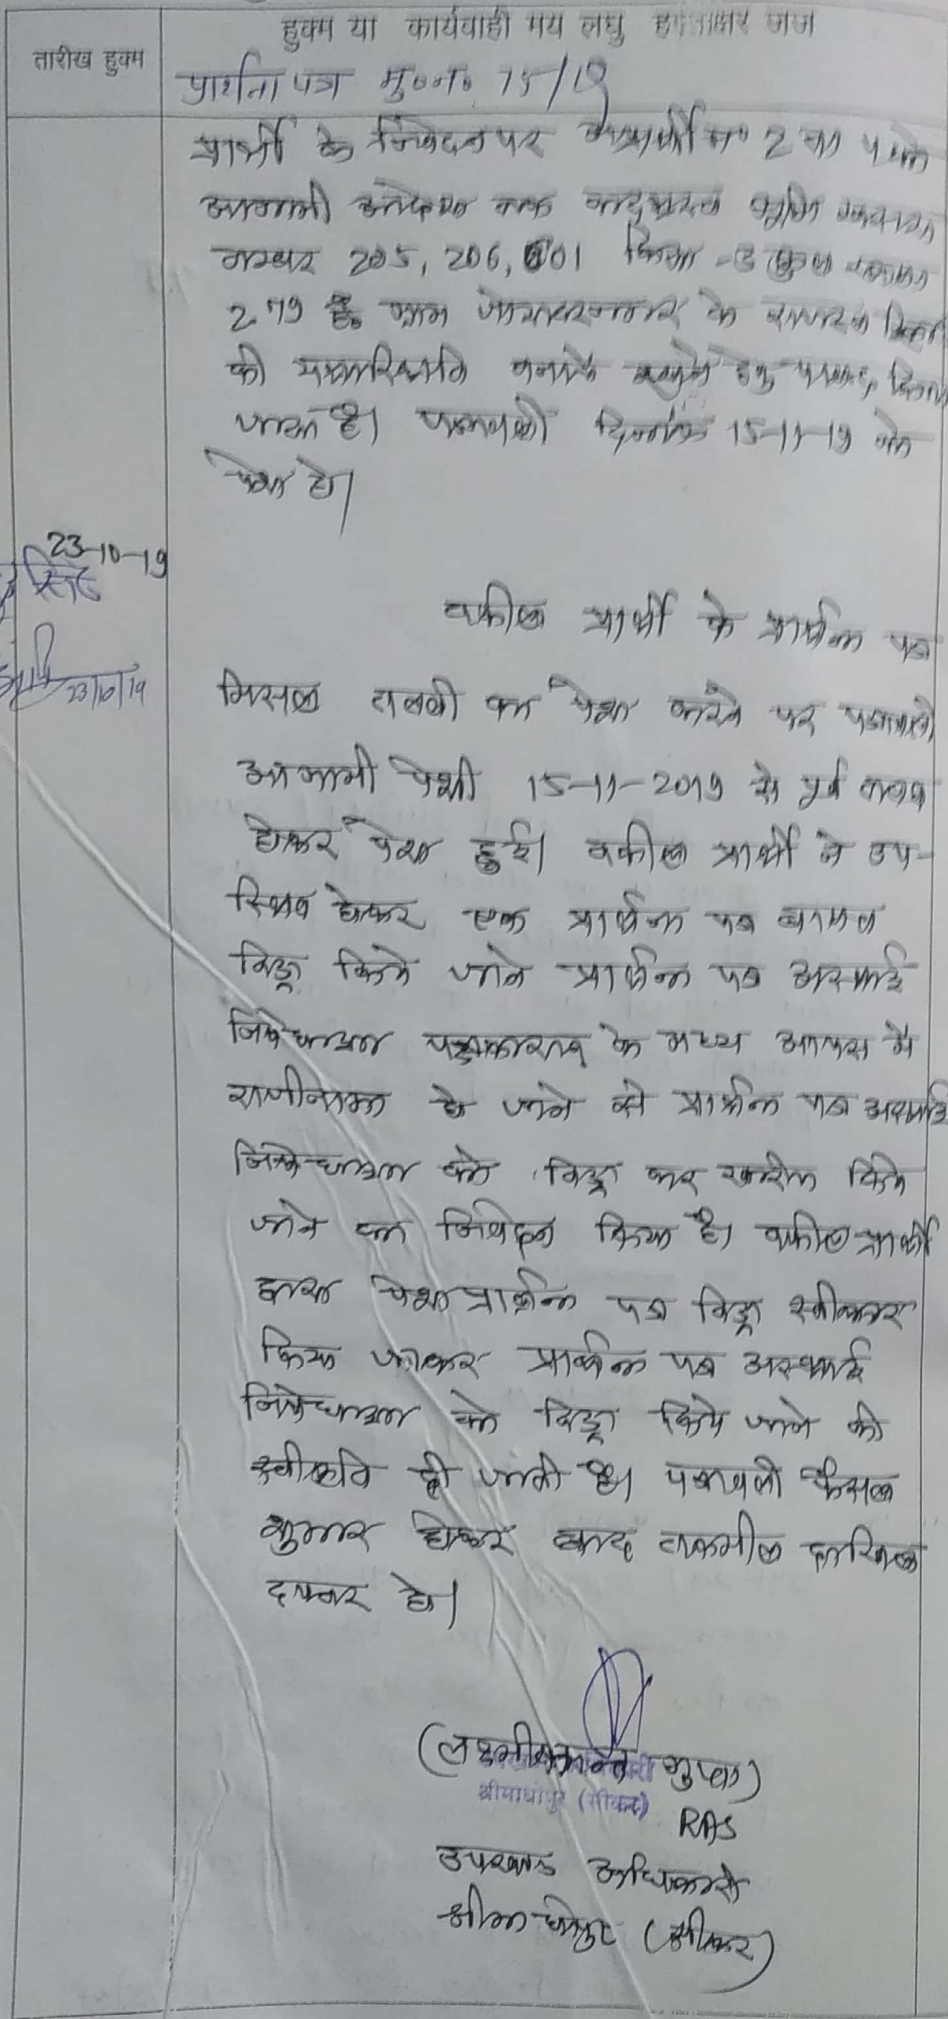 हुक्म या कार्यवाही मय लघु हस्ताक्षर जज
तारीख हुक्म
प्रार्थना पत्र मु०न० 75/19
प्रार्थी के निवेदन पर अप्रार्थी न० 2 को
आगामी आदेश तक वादग्रस्त भूमि खसरा
नम्बर 205, 206, 601 किता -3 कुल रकबा
2.79 है० ग्राम के राजस्व रिकार्ड
की यथास्थिति बनाये रखने हेतु पाबन्द किया
जाता है। पत्रावली दिनांक 15-11-19 को
पेश हो।
23-10-19
23/10/19
वकील प्रार्थी के प्रार्थना पत्र
मिसल तलबी का पेश करने पर पत्रावली
आगामी पेशी 15-11-2019 से पूर्व तलब
होकर पेश हुई। वकील प्रार्थी ने उप-
स्थित होकर एक प्रार्थना पत्र बाबत
विड्रा किये जाने प्रार्थना पत्र अस्थाई
निषेधाज्ञा पक्षकारान के मध्य आपस में
राजीनामा हो जाने से प्रार्थना पत्र अस्थाई
निषेधाज्ञा को विड्रा कर खारीज किये
जाने का निवेदन किया है। वकील प्रार्थी
द्वारा पेश प्रार्थना पत्र विड्रा स्वीकार
किया जाकर प्रार्थना पत्र अस्थाई
निषेधाज्ञा को विड्रा किये जाने की
स्वीकृति दी जाती है। पत्रावली फैसल
शुमार होकर बाद तकमील दाखिल
दफ्तर हो।
(लक्ष्मीकान्त गुप्ता)
श्रीमाधोपुर (सीकर)
RAS
उपखण्ड अधिकारी
श्रीमाधोपुर (सीकर)